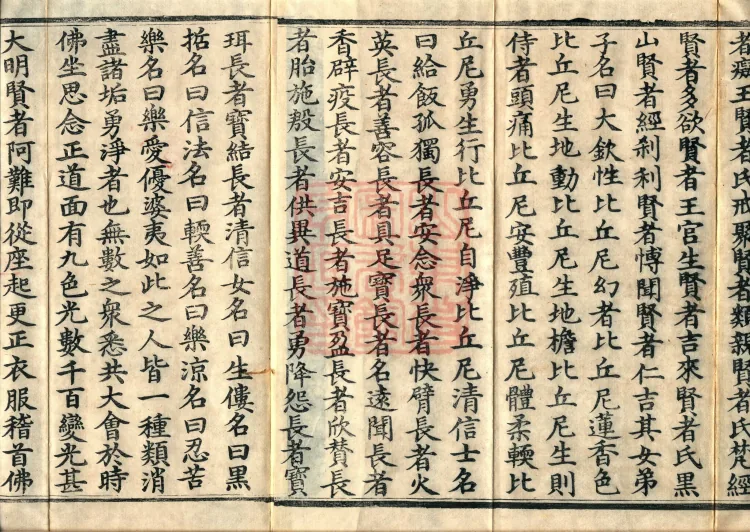 者癘王賢者氏戒聚賢者類親賢者氏梵經
賢者多欲賢者王宮生賢者吉來賢者氏黑
山賢者經剎利賢者博聞賢者仁吉其女弟
子名曰大欽性比丘尼幻者比丘尼蓮香色
比丘尼生地動比丘尼生地檐比丘尼生則
侍者頭痛比丘尼安豐殖比丘尼體柔輭比
丘尼勇生行比丘尼自淨比丘尼清信士名
曰給飯孤獨長者安念衆長者快臂長者火
英長者善容長者具足寶長者名遠聞長者
香辟疫長者安吉長者施寶盈長者欣賛長
者胎施㪍長者供異道長者勇降怨長者寶
珥長者寶結長者清信女名曰生僂名曰黑
㧞名曰信法名曰輭善名曰樂涼名曰忍苦
樂名曰樂愛優婆夷如此之人皆一種類消
盡諸垢勇淨者也無數之衆悉共大會於時
佛坐思念正道面有九色光數千百變光甚
大明賢者阿難即從座起更正衣服稽首佛